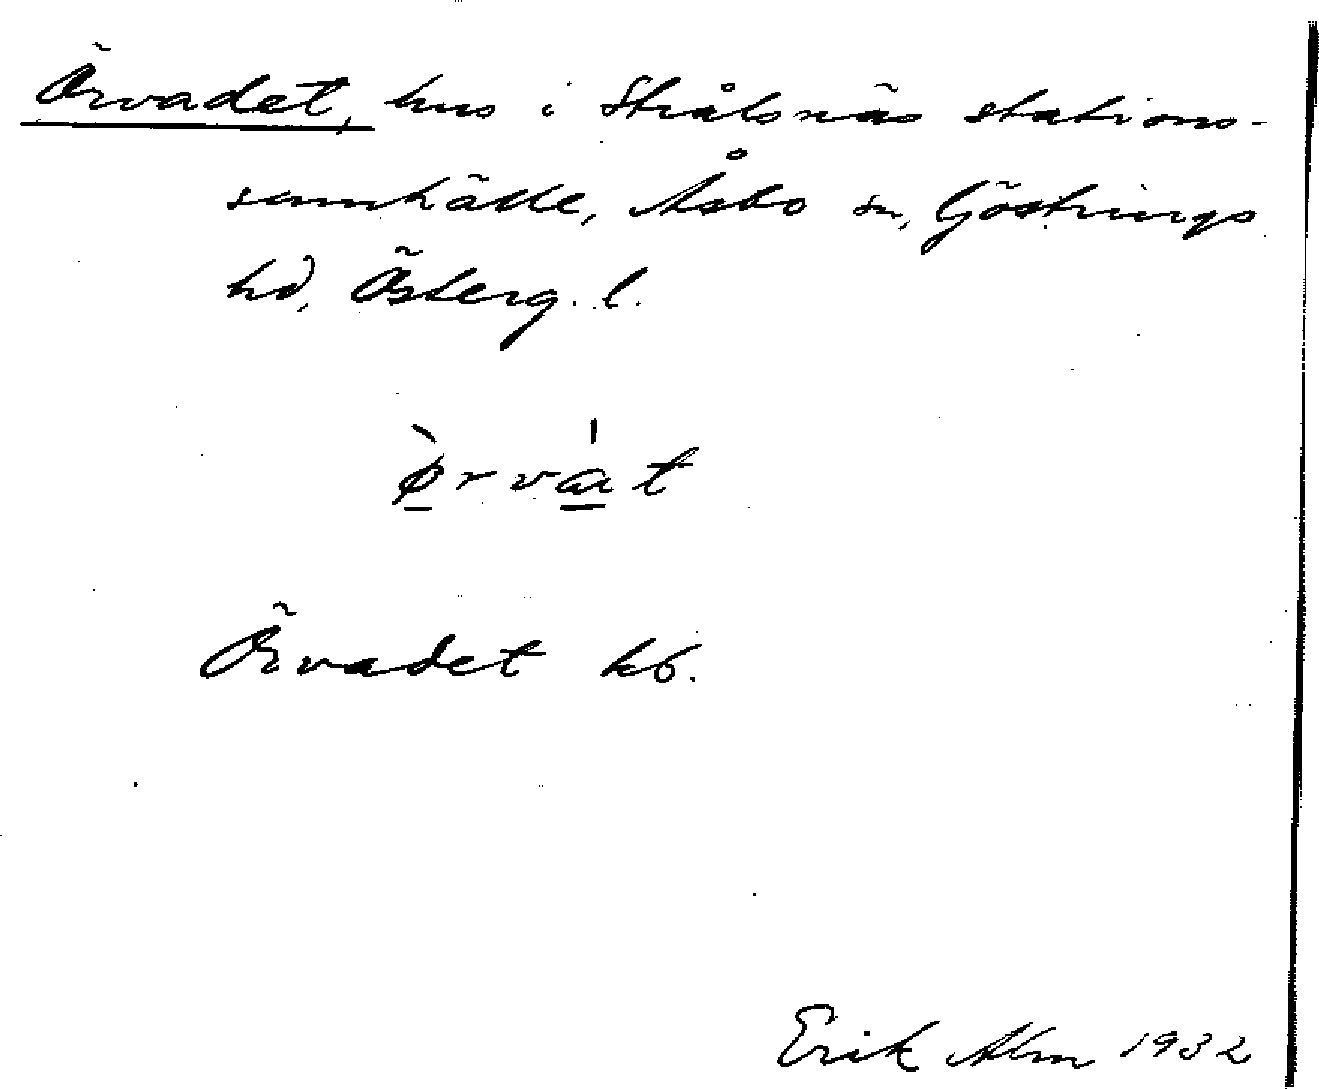 Örvadet, hus i Strålsnäs stations-
samhälle, Åsbo sn, Göstrings
hd, Österg. l.
ø̀rvàt
Örvadet kb.
Erik Alm 1932